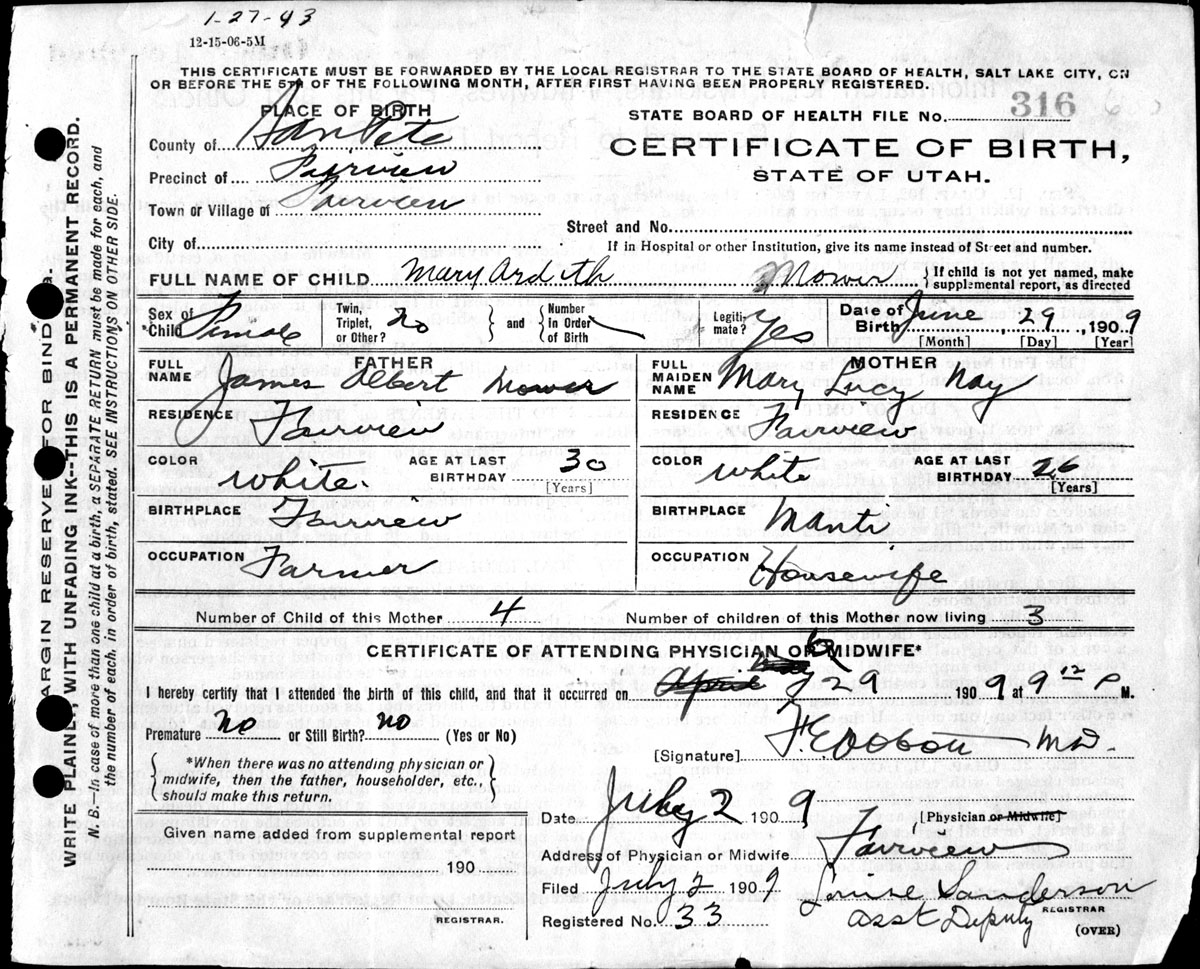 1-27-43
12-15-06-5M
THIS CERTIFICATE MUST BE FORWARDED BY THE LOCAL REGISTRAR TO THE STATE BOARD OF HEALTH, SALT LAKE CITY, ON
OR BEFORE THE 5TH OF THE FOLLOWING MONTH, AFTER FIRST HAVING BEEN PROPERLY REGISTERED.
PLACE OF BIRTH
STATE BOARD OF HEALTH FILE No. 316
County of SanPete
CERTIFICATE OF BIRTH,
Precinct of Fairview
STATE OF UTAH.
Town or Village of Fairview
Street and No.
City of
If in Hospital or other Institution, give its name instead of Street and number.
FULL NAME OF CHILD Mary Ardith Mower { If child is not yet named, make supplemental report, as directed
Sex of *Child Female Twin, Triplet, or Other? no and Number In Order of Birth Legiti- mate? Yes Date of Birth June, 29, 1909
[Month] [Day] [Year]
FATHER
FULL NAME James Albert Mower
RESIDENCE Fairview
COLOR White. AGE AT LAST BIRTHDAY 30 [Years]
BIRTHPLACE Fairview
OCCUPATION Farmer
MOTHER
FULL MAIDEN NAME Mary Lucy Nay
RESIDENCE Fairview
COLOR White AGE AT LAST BIRTHDAY 26 [Years]
BIRTHPLACE Manti
OCCUPATION Housewife
Number of Child of this Mother 4 Number of children of this Mother now living 3
CERTIFICATE OF ATTENDING PHYSICIAN OR MIDWIFE*
I hereby certify that I attended the birth of this child, and that it occurred on 29 1909 at 9 P M.
Premature no or Still Birth? no (Yes or No)
[Signature] M.D.
*When there was no attending physician or
midwife, then the father, householder, etc.,
should make this return.
[Physician or Midwife]
Date July 2 1909
Given name added from supplemental report
190
REGISTRAR.
Address of Physician or Midwife Fairview
Filed July 2 1909 Louise Sanderson
REGISTRAR
Registered No. 33 Asst Deputy
(OVER)
MARGIN RESERVED FOR BINDING.
WRITE PLAINLY, WITH UNFADING INK--THIS IS A PERMANENT RECORD.
N. B.—In case of more than one child at a birth, a SEPARATE RETURN must be made for each, and
the number of each, in order of birth, stated. SEE INSTRUCTIONS ON OTHER SIDE.